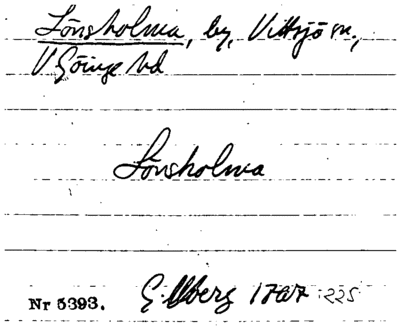 Lönsholma, by, Vittsjö sn.,
V Göinge hd
Lönsholma
Gillberg 1767 :225
Nr 5393.